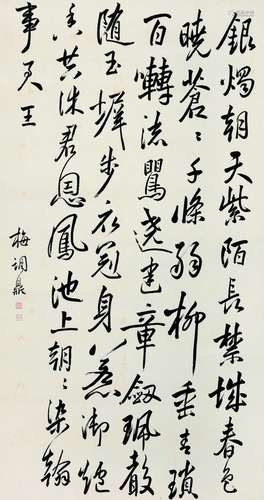 銀燭朝天紫陌長禁城春色
曉蒼〻千條弱柳垂青瑣
百囀流鶯遶建章劍珮聲
隨玉墀步衣冠身惹御爐
香共沐君恩鳳池上朝〻染翰
事君王
梅調鼎